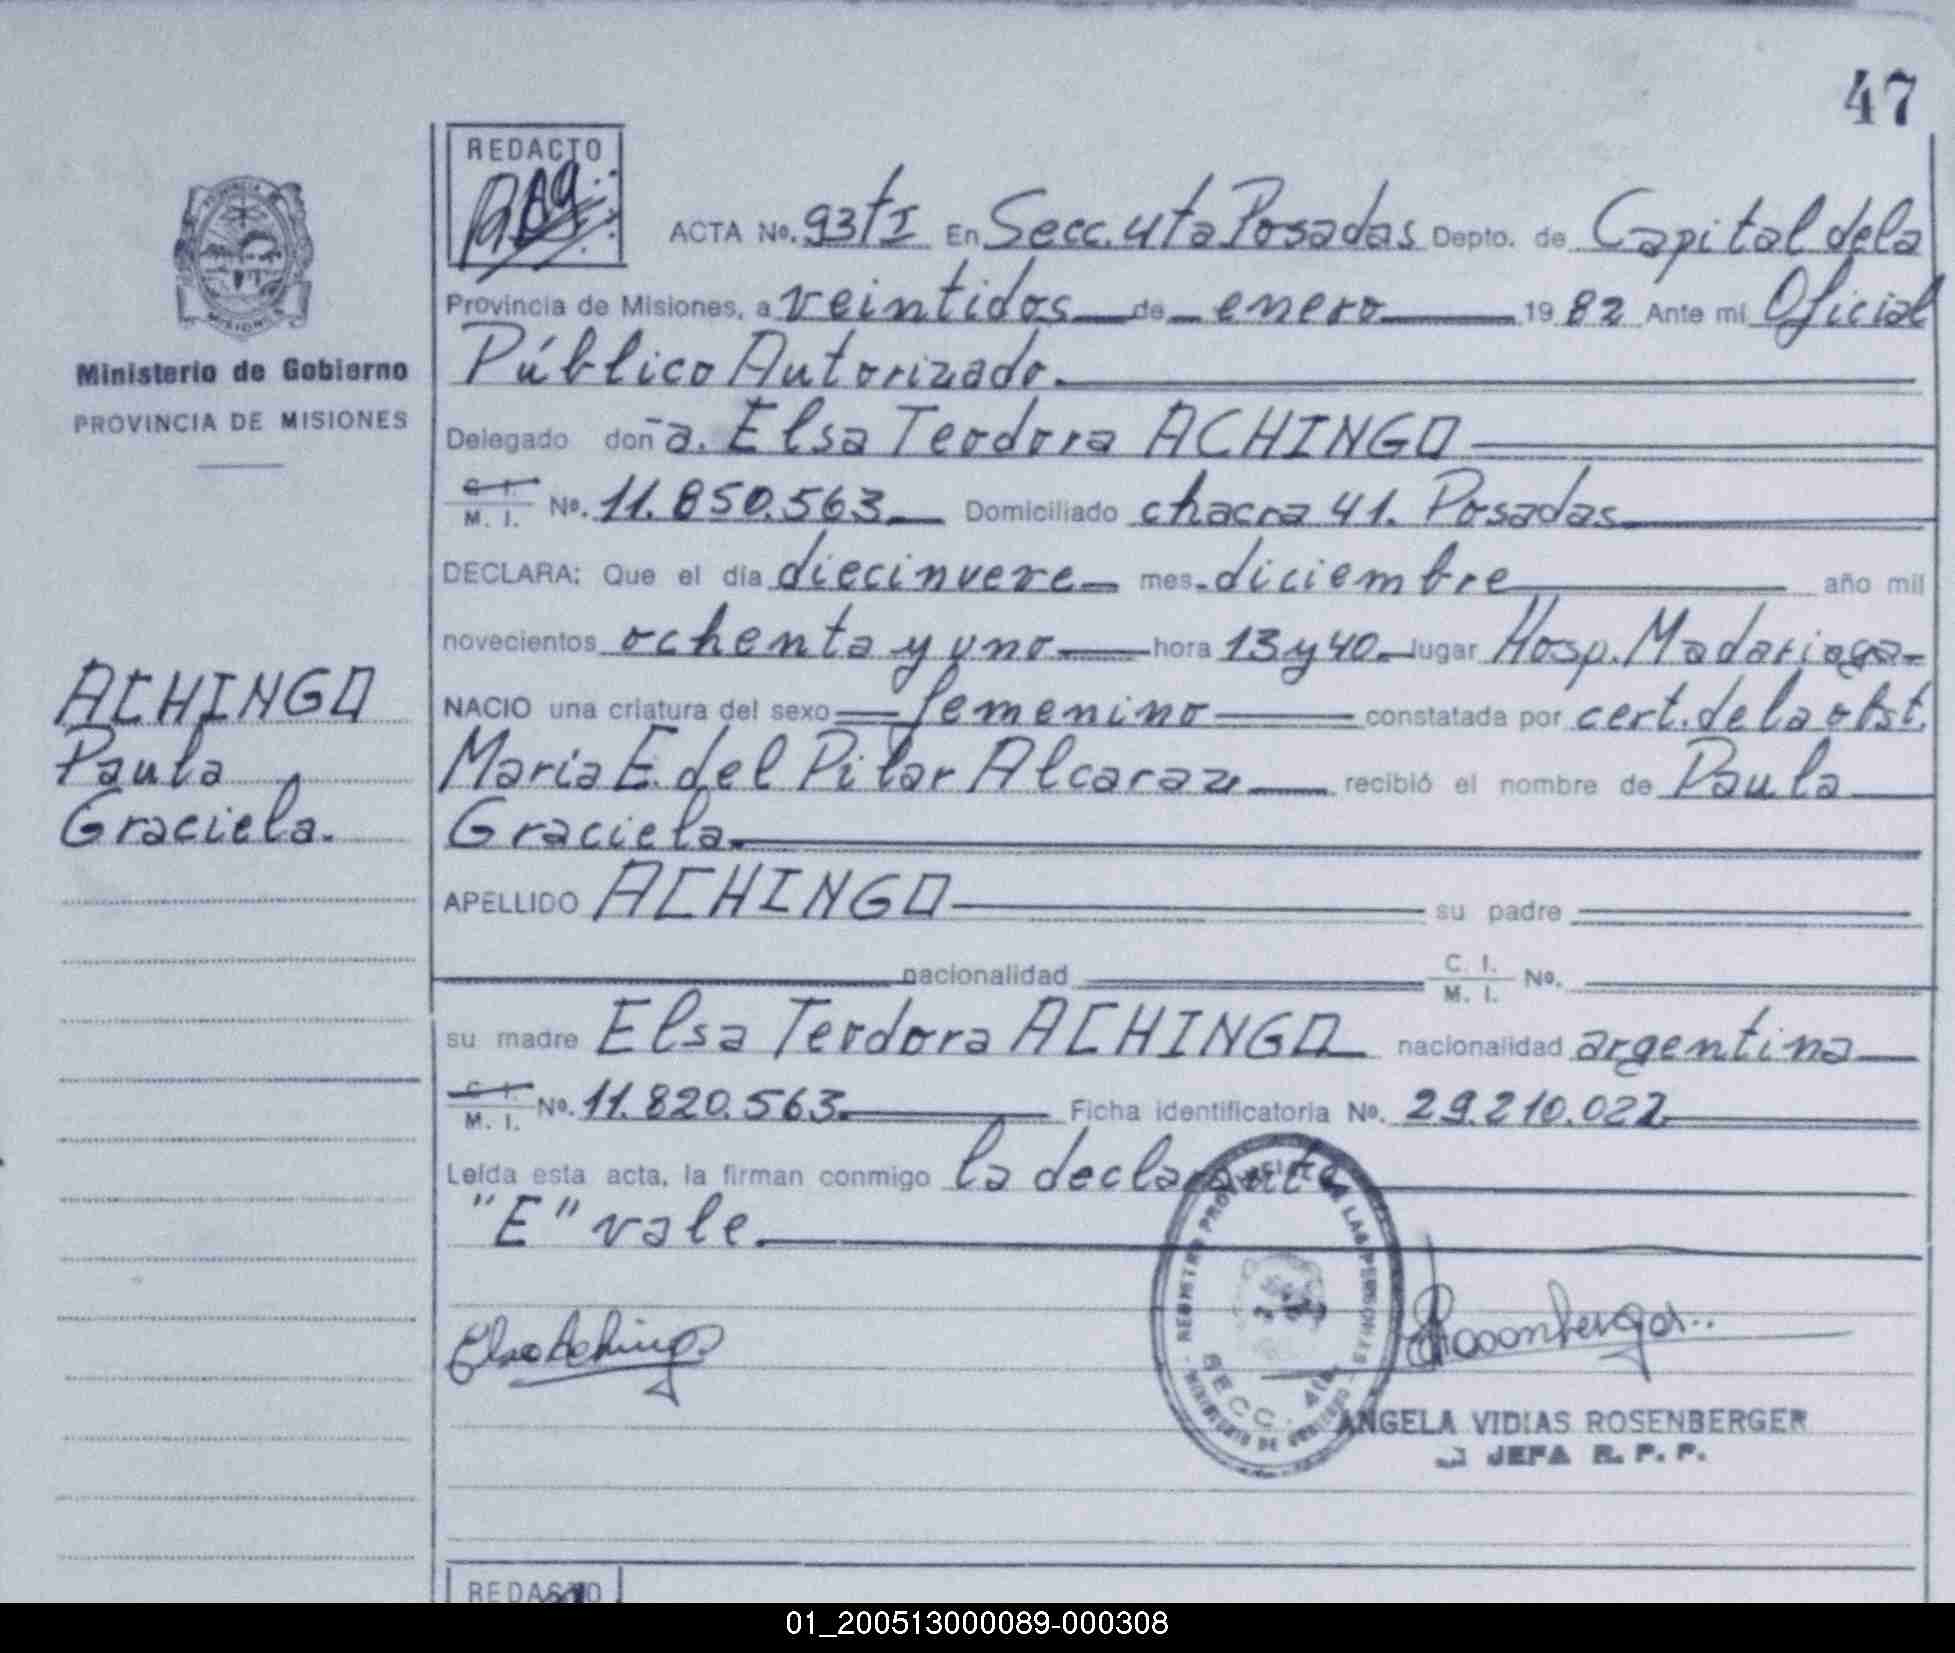 47
REDACTO
ACTA No. 93 tI En Secc. 4ta Posadas Depto. de Capital de la
Provincia de Misiones, a veintidos de enero 1982 Ante mi Oficial
Público Autorizado.
Ministerio de Gobierno
PROVINCIA DE MISIONES
Delegado doña. Elsa Teodora ACHINGO
C. I.
M. I. No. 11.850.563 Domiciliado chacra 41. Posadas
DECLARA: Que el día diecinueve mes diciembre año mil
novecientos ochenta y uno hora 13 y 40 lugar Hosp. Madariaga
ACHINGO
Paula
Graciela.
NACIO una criatura del sexo femenino constatada por cert. de la obst.
María E. del Pilar Alcaraz recibió el nombre de Paula
Graciela.
APELLIDO ACHINGO su padre
nacionalidad C. I.
M. I. No.
su madre Elsa Teodora ACHINGO nacionalidad argentina
C. I.
M. I. No. 11.820.563 Ficha identificatoria No. 29.210.022
Leída esta acta, la firman conmigo la declarante
"E" vale.
Elsa Achingo
Rosenberger
REGISTRO PROVINCIAL DE LAS PERSONAS
SECC. 4ta
MINISTERIO DE GOBIERNO
ANGELA VIDIAS ROSENBERGER
JEFA R. P. P.
REDACTO
01_200513000089-000308